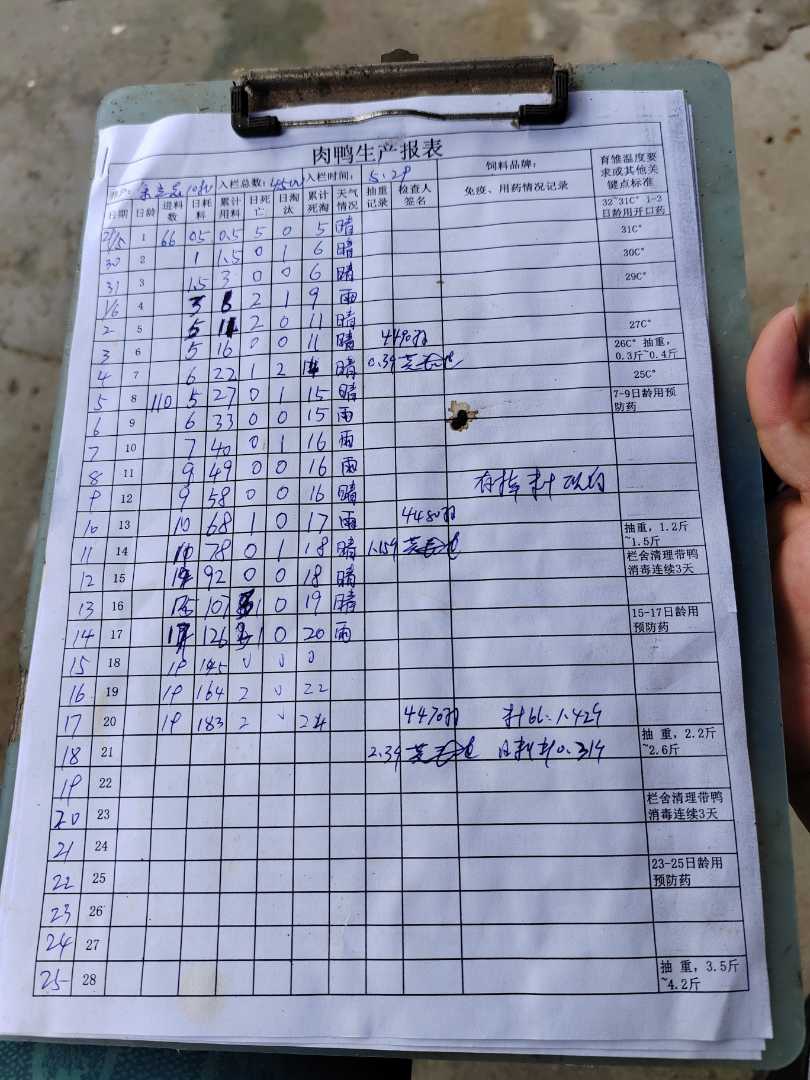 肉鸭生产报表
入栏总数: 4500 入栏时间: 5.29 饲料品牌: 育雏温度要求或其他关键点标准
日期 日龄 进料数 日耗料 累计用料 日死亡 日淘汰 累计死淘 天气情况 抽重记录 检查人签名 免疫、用药情况记录 32~31C° 1-2日龄用开口药
29/5 1 66 0.5 0.5 5 0 5 晴 31C°
30 2 1 1.5 0 1 6 晴 30C°
31 3 1.5 3 0 0 6 晴 29C°
1/6 4 3 6 2 1 9 雨
2 5 5 11 2 0 11 晴 27C°
3 6 5 16 0 0 11 晴 4490羽 26C° 抽重,0.3斤~0.4斤
4 7 6 22 1 2 14 晴 0.39 25C°
5 8 110 5 27 0 1 15 晴 7-9日龄用预防药
6 9 6 33 0 0 15 雨
7 10 7 40 0 1 16 雨
8 11 9 49 0 0 16 雨
9 12 9 58 0 0 16 晴
10 13 10 68 1 0 17 雨 4480羽 抽重,1.2斤~1.5斤
11 14 10 78 0 1 18 晴 1.159 栏舍清理带鸭消毒连续3天
12 15 14 92 0 0 18 晴
13 16 15 107 1 0 19 晴 15-17日龄用预防药
14 17 126 1 0 20 雨
15 18 19 145 0 0 0
16 19 19 164 2 0 22
17 20 19 183 2 0 24 4470羽 料比:1.429
18 21 2.39 日耗料0.319 抽 重,2.2斤~2.6斤
19 22
20 23 栏舍清理带鸭消毒连续3天
21 24
22 25 23-25日龄用预防药
23 26
24 27
25 28 抽 重,3.5斤~4.2斤